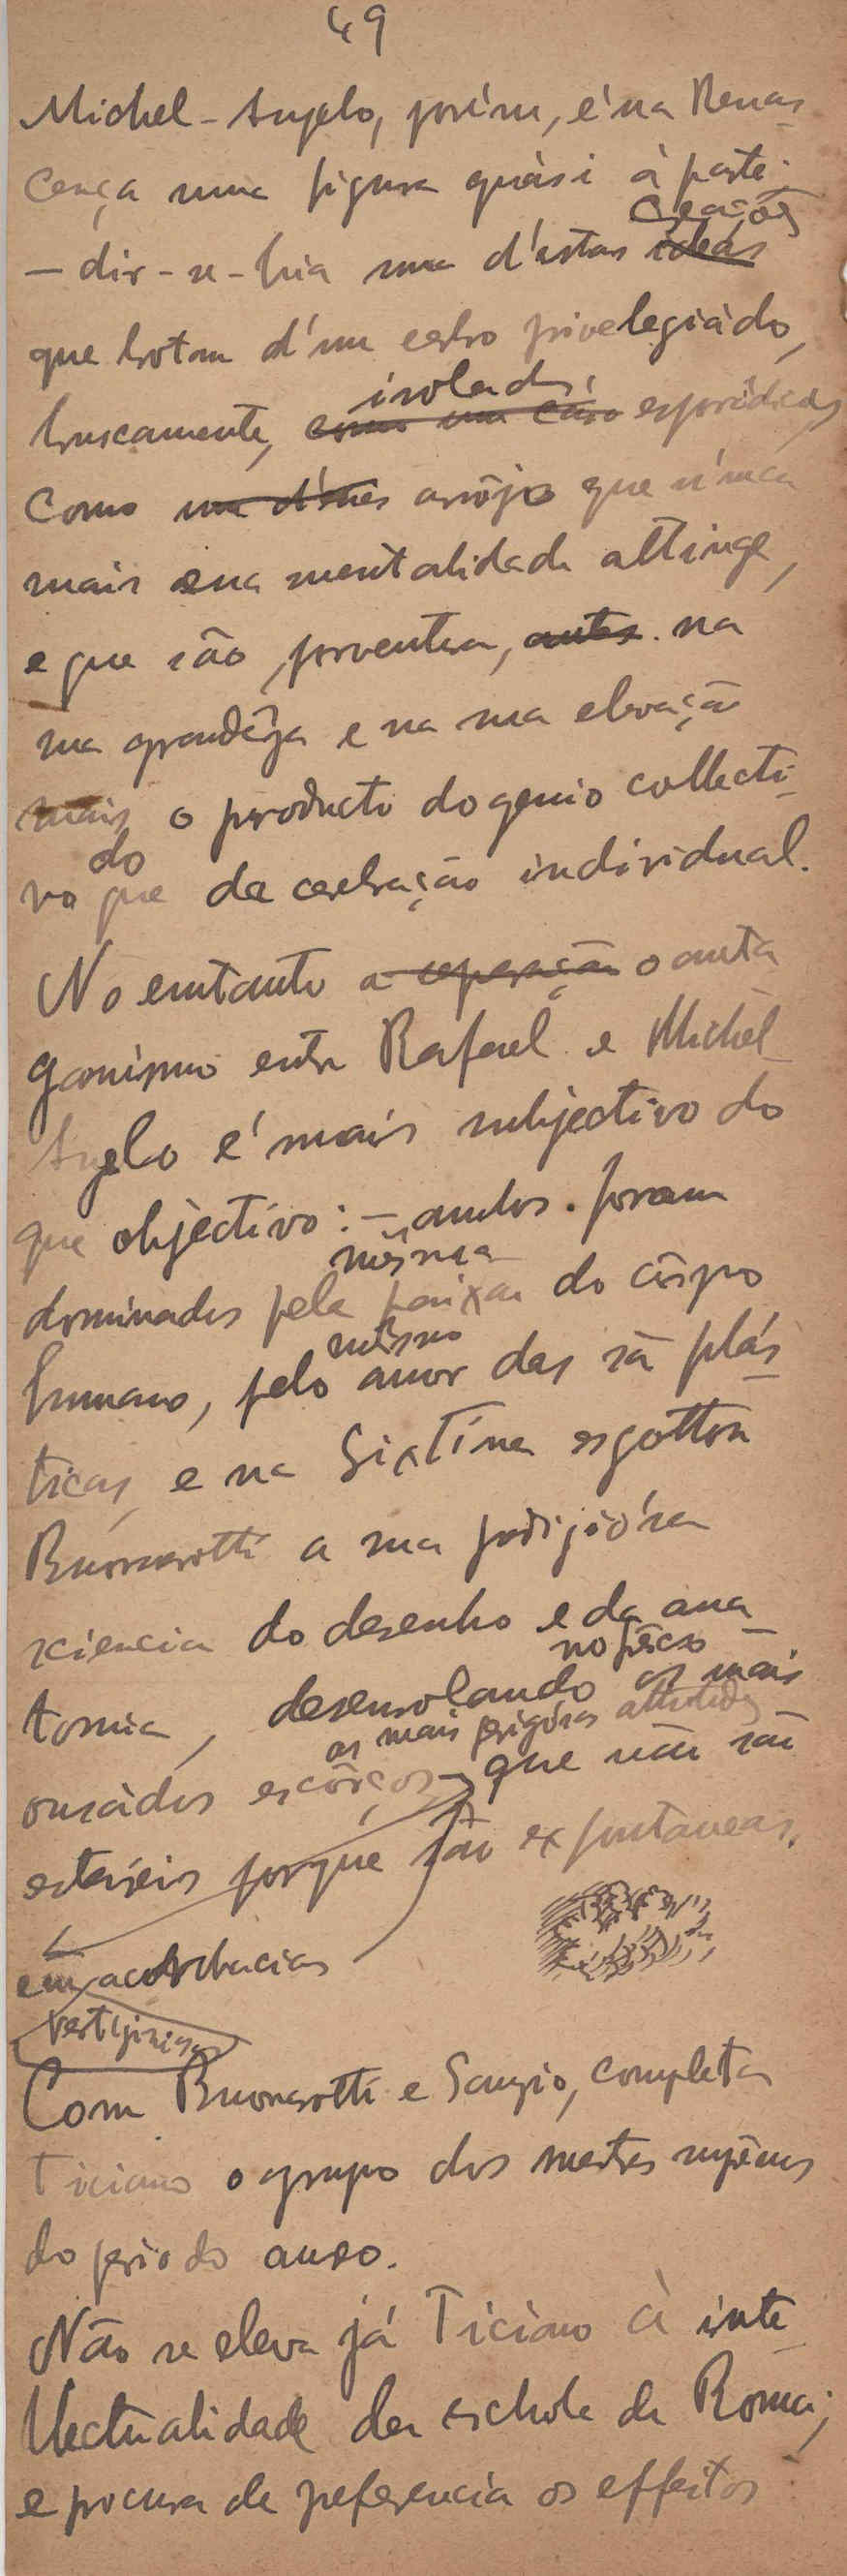 49
Michel-Angelo, porém, é na Renas-
cença uma figura quási à parte:
creações
— dir-se-hia uma d'estas ideas
que brotam d'um cerbro privelegiádo,
isolados,
bruscamente, como um cáso esporádicas
como um d'esses arrôjos que núnca
mais sua mentalidade attinge,
e que são, porventura, antes na
sua grandêza e na sua elevação
mais o producto do genio collecti-
do
vo que da cerebração individual.
No emtanto a separação o anta
gonismo entre Rafael e Michel-
Angelo é mais subjectivo do
que objectivo: — ambos foram
mêsma
dominados pela paixão do côrpo
mêsmo
humano, pelo amor das sã plás-
ticas, e na Sixtína esgottou
Buonarotti a sua prodigiósa
sciencia do desenho e da ana-
no têcto
tomia, desenrolando os mais
os mais perigósas attitudes
ousádos escôrços, que não são
estáveis porque são expontaneas.
em acrobacias
vertiginósas
Com Buonarotti e Sanzio, completa
Ticiano o grupo dos mestres suprêmos
do periodo aureo.
Não se eleva já Ticiano à inte-
llectualidade da eschola de Roma;
e procura de preferencia os effeitos